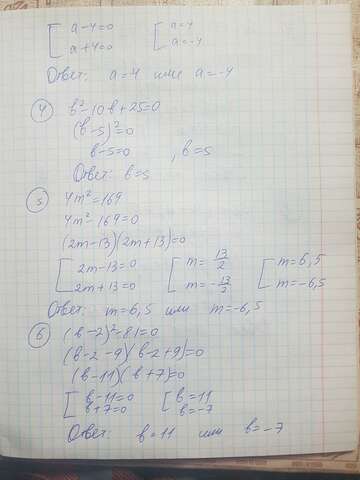 [ a-4=0 [ a=4
[ a+4=0 [ a=-4
Ответ: a=4 или a=-4
4 b²-10b+25=0
(b-5)²=0
b-5=0 , b=5
Ответ: b=5
5 4m²=169
4m²-169=0
(2m-13)(2m+13)=0
[ 2m-13=0 [ m=13/2 [ m=6,5
[ 2m+13=0 [ m=-13/2 [ m=-6,5
Ответ: m=6,5 или m=-6,5
6 (b-2)²-81=0
(b-2-9)(b-2+9)=0
(b-11)(b+7)=0
[ b-11=0 [ b=11
[ b+7=0 [ b=-7
Ответ: b=11 или b=-7